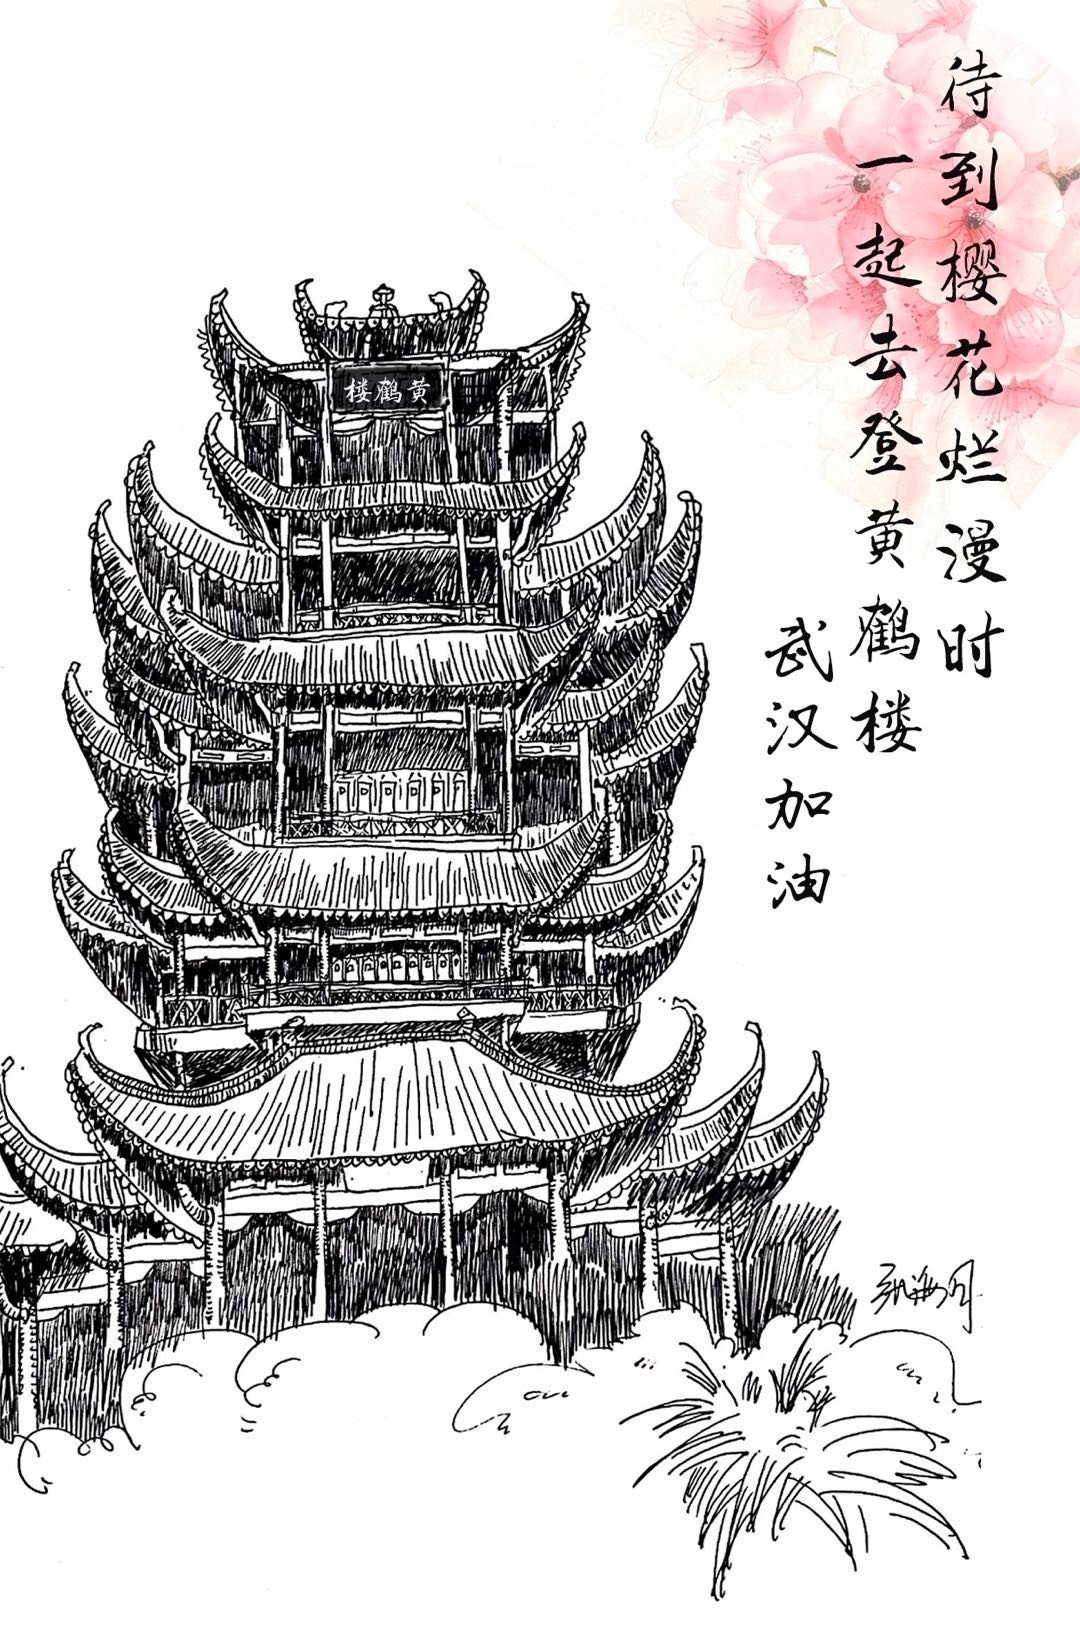 待到樱花烂漫时
一起去登黄鹤楼
武汉加油
黄鹤楼